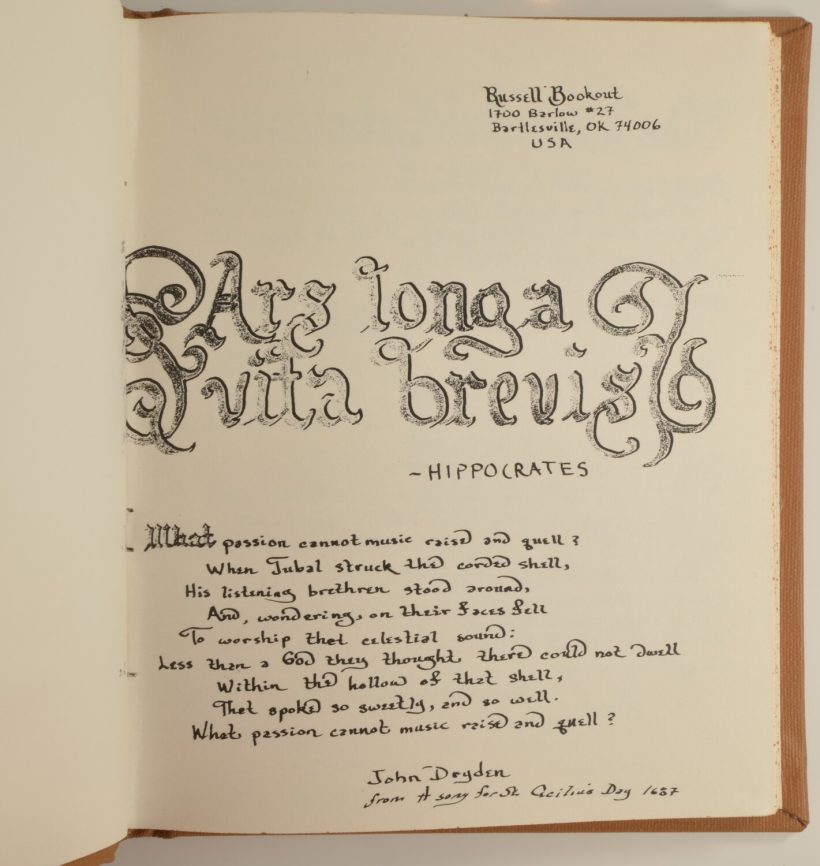 Russell Bookout
1700 Barlow #27
Bartlesville, OK 74006
USA
Ars longa
vita brevis
~HIPPOCRATES
What passion cannot music raise and quell?
When Jubal struck the corded shell,
His listening brethren stood around,
And, wondering, on their faces fell
To worship that celestial sound:
Less than a God they thought there could not dwell
Within the hollow of that shell,
That spoke so sweetly, and so well.
What passion cannot music raise and quell?
John Dryden
from A song for St. Cecilia's Day 1687